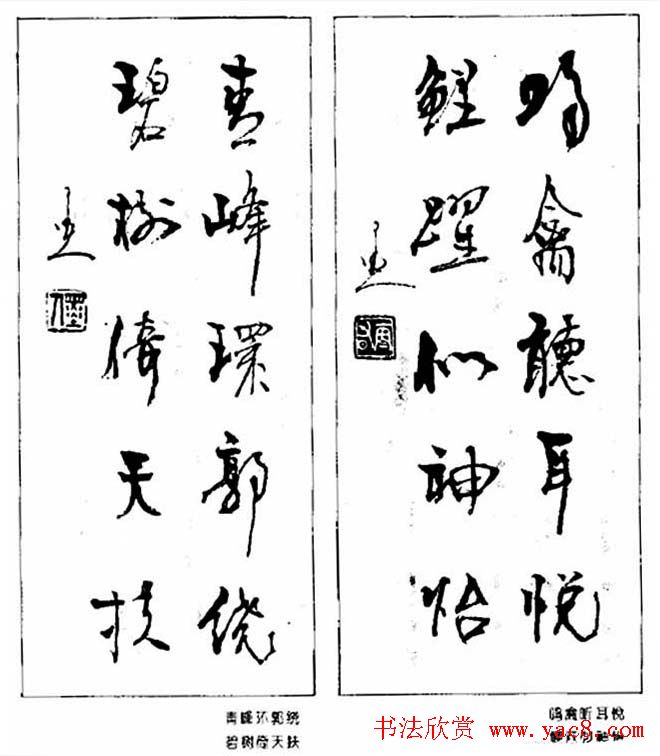 鸣禽聽耳悦
鲤躍似神怡
青峰環郭绕
碧樹倚天扶
青峰环郭绕
碧树倚天扶
鸣禽听耳悦
书法欣赏 www.yac8.com